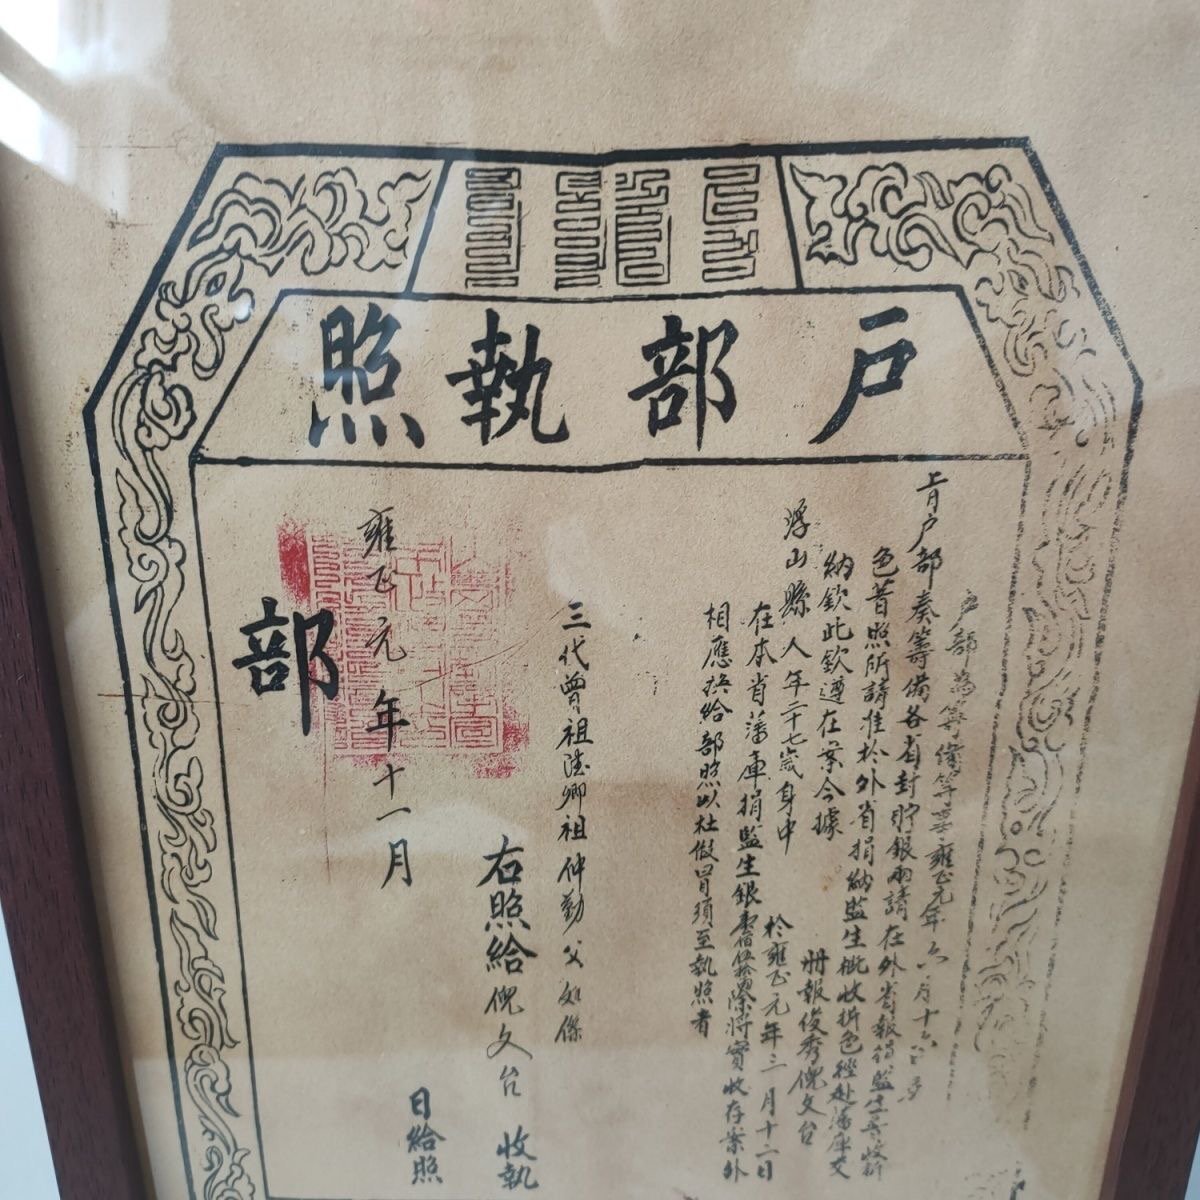 戶部執照
戶部為籌備等事雍正元年六月十六日
上月戶部奏籌備各省封貯銀兩請在外省報捐監生
色普照所請准於外省捐納監生概收折色徑赴藩庫交
納欽此欽遵在案今據
冊報俊秀倪文台
浮山縣人年二十七歲身中
於雍正元年三月十二日
在本省藩庫捐監生銀壹佰伍拾 除將實收存案外
相應換給部照以杜假冒須至執照者
三代曾祖 卿祖仲勤父如傑
右照給倪文台收執
雍正元年十一月
日給照
部